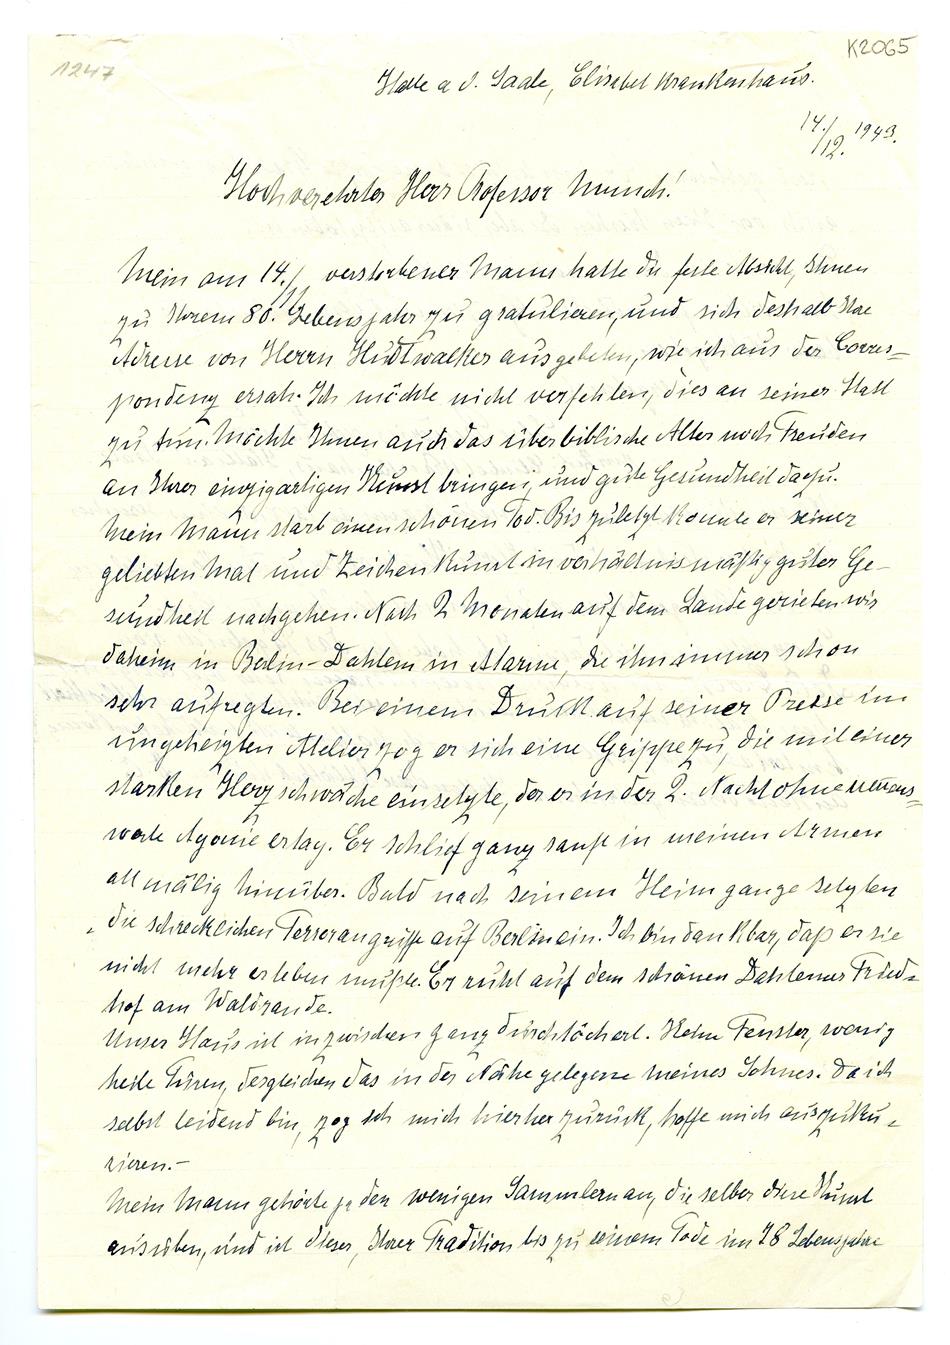 1247
K2065
Halle a d. Saale, Elisabet Krankenhaus.
14./12. 1943.
Hochverehrter Herr Professor Munch!
Mein am 14./11 verstorbener Mann hatte die feste Absicht, Ihnen
zu Ihrem 80. Lebensjahr zu gratulieren, und sich deshalb Ihre
Adresse von Herrn Hudtwalker ausgebeten, wie ich aus der Corres-
pondenz ersah. Ich möchte nicht verfehlen, dies an seiner Statt
zu tun. Möchte Ihnen auch das überbiblische Alter noch Freuden
an Ihrer einzigartigen Kunst bringen, und gute Gesundheit dazu.
Mein Mann starb einen schönen Tod. Bis zuletzt konnte er seiner
geliebten Mal und Zeichenkunst in verhältnismäßig guter Ge-
sundheit nachgehen. Nach 2 Monaten auf dem Lande gerieten wir
daheim in Berlin-Dahlem in Alarme, die ihn immer schon
sehr aufregten. Bei einem Druck auf seiner Presse im
ungeheizten Atelier zog er sich eine Grippe zu, die mit einer
starken Herzschwäche einsetzte, der er in der 2. Nacht ohne nennens-
werte Agonie erlag. Er schlief ganz sanft in meinen Armen
allmälig hinüber. Bald nach seinem Heimgange setzten
die schrecklichen Terrorangriffe auf Berlin ein. Ich bin dankbar, daß er sie
nicht mehr erleben mußte. Er ruht auf dem schönen Dahlemer Fried-
hof am Waldrande.
Unser Haus ist inzwischen ganz durchlöchert. Keine Fenster, wenig
heile Türen, desgleichen das in der Nähe gelegene meines Sohnes. Da ich
selbst leidend bin, zog ich mich hierher zurück, hoffe mich auszuku-
rieren.-
Mein Mann gehörte ja den wenigen Sammlern an, die selber diese Kunst
ausüben, und ist dieser, Ihrer Tradition bis zu seinem Tode im 78 Lebensjahre